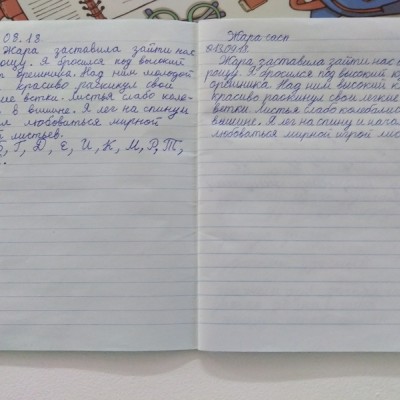 03.18
Жара заставила зайти нас
рощу. Я бросился под высокий
орешника. Над ним молодой
красиво раскинул свои
ветки. Листья слабо коле-
в вышине. Я лег на спину
любоваться мирной
листьев.
Г, Д, Е, И, К, М, Р, Т,
Жара спасп
Жара заставила зайти нас в
рощу. Я бросился под высокий к
орешника. Над ним высокий к
красиво раскинул свои легкие
ветки. Листья слабо колебалис
вышине. Я лег на спину и нача
любоваться мирной игрой лис